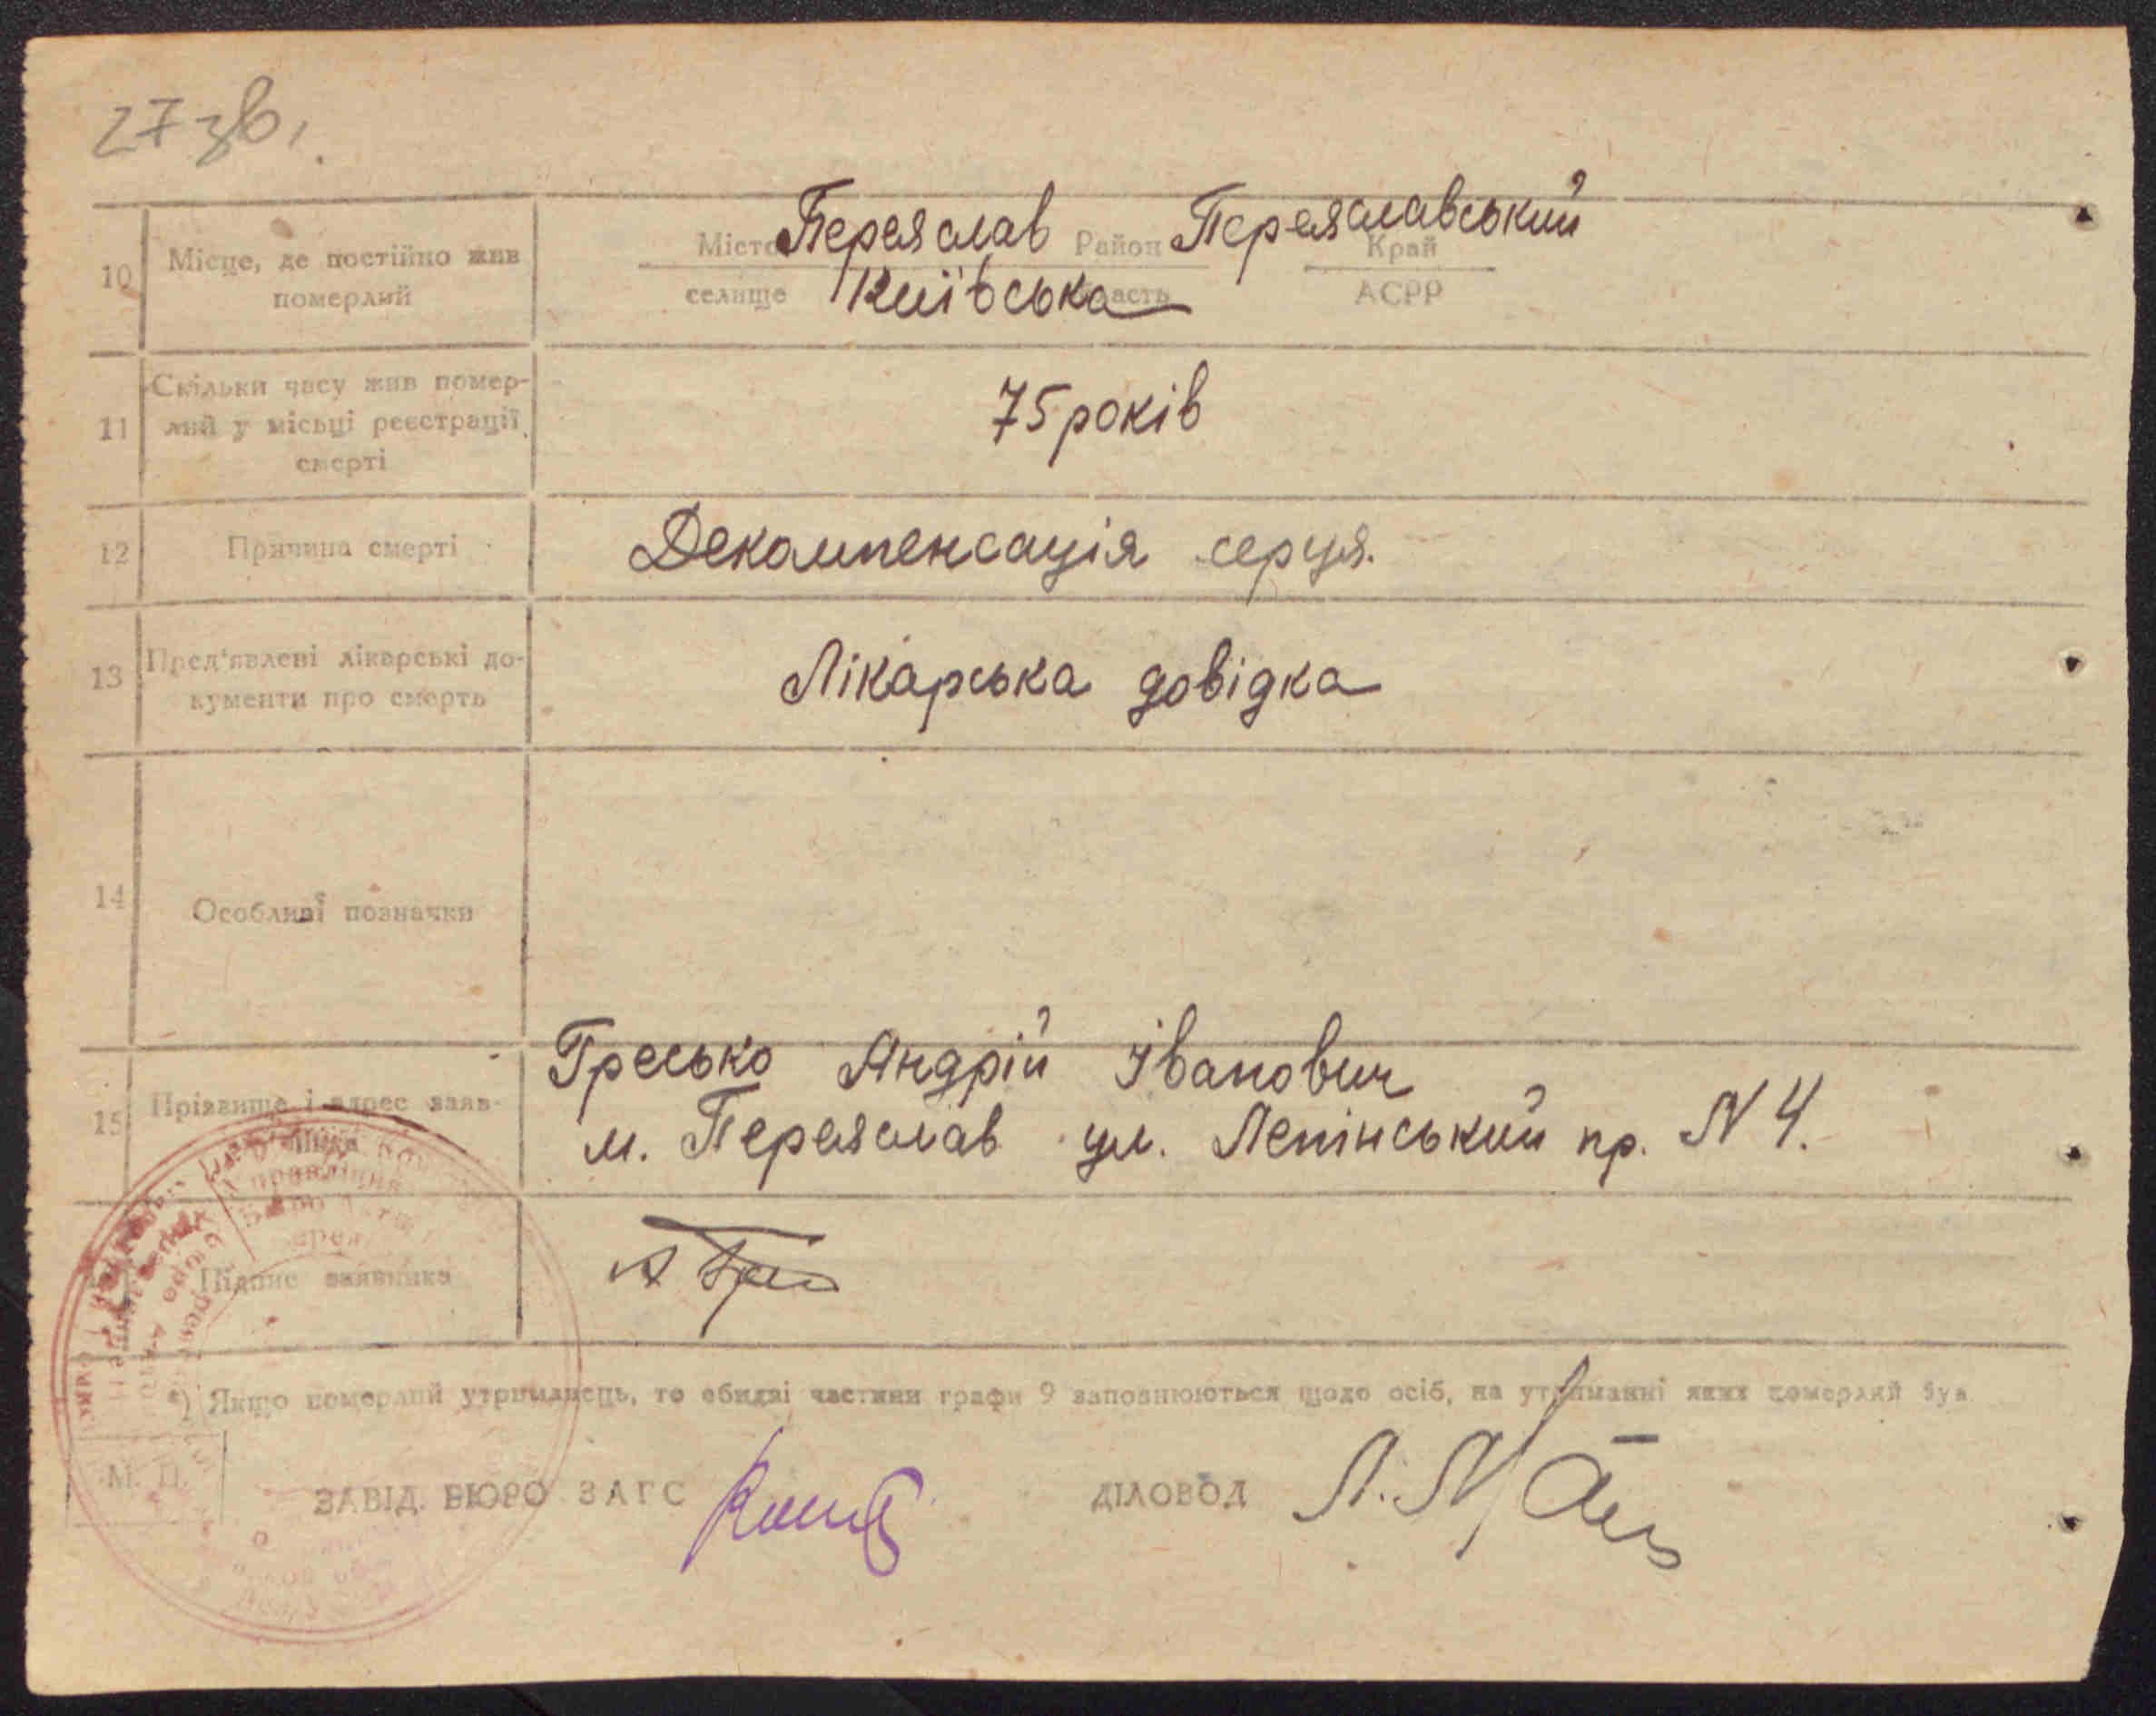 27 зв.
10 Місце, де постійно жив померлий
Місто Переяслав Район Переяславський Край
селище Київська область АСРР
11 Скільки часу жив помер-
лий у місьці реєстрації
смерті
75 років
12 Причина смерті Декомпенсація серця.
13 Пред'явлені лікарські до-
кументи про смерть
Лікарська довідка
14 Особливі позначки
Гресько Андрій Іванович
15 Прізвище і адрес заяв-
ника
м. Переяслав ул. Ленінський пр. N 4.
Підпис заявника
*) Якщо померлий утриманець, то обидві частини графи 9 заповнюються щодо осіб, на утриманні яких померлий був
М. П.
ЗАВІД. БЮРО ЗАГС ДІЛОВОД